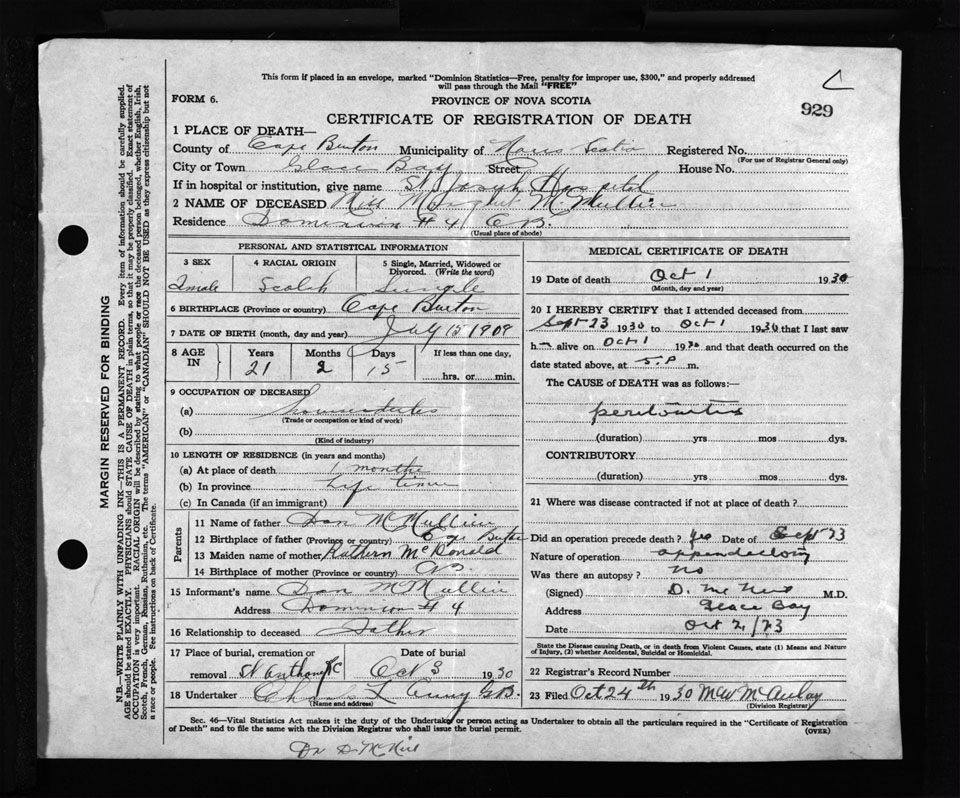 This form if placed in an envelope, marked "Dominion Statistics—Free, penalty for improper use, $300," and properly addressed
will pass through the Mail "FREE"
929
FORM 6.
PROVINCE OF NOVA SCOTIA
CERTIFICATE OF REGISTRATION OF DEATH
1 PLACE OF DEATH—
County of Cape Breton Municipality of Nova Scotia Registered No.
(For use of Registrar General only)
City or Town Glace Bay Street House No.
If in hospital or institution, give name St Joseph Hospital
2 NAME OF DECEASED Miss Margaret McMullin
Residence Dominion #4 C.B.
(Usual place of abode)
PERSONAL AND STATISTICAL INFORMATION
3 SEX 4 RACIAL ORIGIN 5 Single, Married, Widowed or
Divorced. (Write the word)
Scotch Single
6 BIRTHPLACE (Province or country) Cape Breton
7 DATE OF BIRTH (month, day and year) July 15 1909
8 AGE IN Years Months Days If less than one day,
21 2 15 hrs. or min.
9 OCCUPATION OF DECEASED
(a)
(Trade or occupation or kind of work)
(b)
(Kind of industry)
10 LENGTH OF RESIDENCE (in years and months)
(a) At place of death months
(b) In province Life time
(c) In Canada (if an immigrant)
Parents
11 Name of father Dan McMullin
12 Birthplace of father (Province or country) Cape Breton
13 Maiden name of mother Kathern McDonald
14 Birthplace of mother (Province or country) C.B.
15 Informant's name Dan McMullin
Address Dominion #4
16 Relationship to deceased Father
17 Place of burial, cremation or Date of burial
removal St Anthony RC Oct 3 1930
18 Undertaker
(Name and address)
MEDICAL CERTIFICATE OF DEATH
19 Date of death Oct 1 1930
(Month, day and year)
20 I HEREBY CERTIFY that I attended deceased from
Sept 23 1930 to Oct 1 1930 that I last saw
h alive on Oct 1 1930 and that death occurred on the
date stated above, at 5 P m.
The CAUSE of DEATH was as follows:
peritonitis
(duration) yrs mos dys.
CONTRIBUTORY
(duration) yrs mos dys.
21 Where was disease contracted if not at place of death?
Did an operation precede death? yes Date of Sept 23
Nature of operation
Was there an autopsy? no
(Signed) D. McNeil M.D.
Address Glace Bay
Date Oct 2/23
State the Disease causing Death, or in death from Violent Causes, state (1) Means and Nature
of Injury, (2) whether Accidental, Suicidal or Homicidal.
22 Registrar's Record Number
23 Filed Oct 24th 1930 McAulay
(Division Registrar)
Sec. 46—Vital Statistics Act makes it the duty of the Undertaker or person acting as Undertaker to obtain all the particulars required in the "Certificate of Registration
of Death" and to file the same with the Division Registrar who shall issue the burial permit.
(OVER)
Dr D McNeil
MARGIN RESERVED FOR BINDING
N.B.—WRITE PLAINLY WITH UNFADING INK—THIS IS A PERMANENT RECORD. Every item of information should be carefully supplied.
AGE should be stated EXACTLY. PHYSICIANS should STATE CAUSE OF DEATH in plain terms, so that it may be properly classified. Exact statement of
OCCUPATION is very important. RACIAL ORIGIN will be described by stating to what people or race the deceased person belonged, whether English, Irish,
Scotch, French, German, Russian, Ruthenian, etc. The terms "AMERICAN" or "CANADIAN" SHOULD NOT BE USED as they express citizenship but not
a race or people. See instructions on back of Certificate.